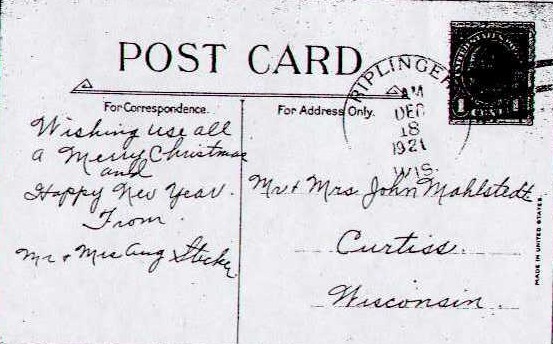 POST CARD
RIPLINGER
AM
DEC
18
1921
WIS.
UNITED STATES
1 CENT 1
For Correspondence.
For Address Only.
Wishing use all
a Merry Christmas
and
Happy New Year.
From
Mr & Mrs Aug Stecker
Mr & Mrs John Mahlstedt
Curtiss.
Wisconsin.
MADE IN UNITED STATES.